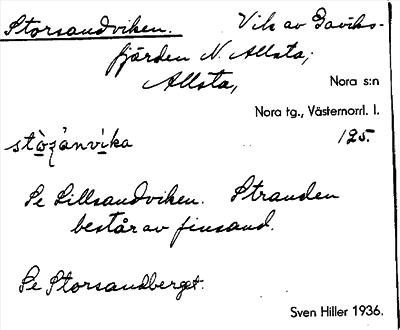 Storsandviken. Vik av Gaviks-
fjärden N. Allsta;
Allsta, Nora s:n
Nora tg., Västernorrl. l.
125.
Se Lillsandviken. Stranden
består av finsand.
Se Storsandberget.
Sven Hiller 1936.